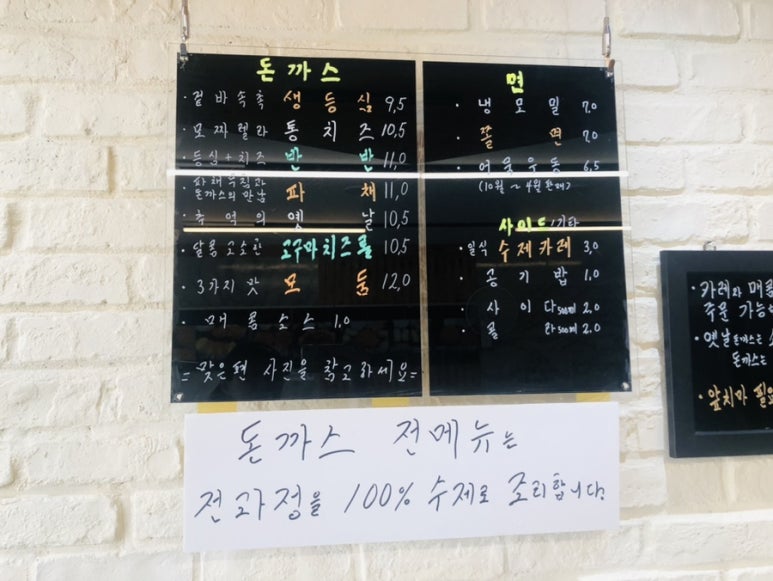 돈까스
· 겉바속촉 생등심 9,5
· 모짜렐라 통치즈 10,5
· 등심+치즈 반반 11,0
· 파채무침과 돈까스의 만남 파채 11,0
· 추억의 옛날 10,5
· 달콤고소한 고구마치즈롤 10,5
· 3가지 맛 모둠 12,0
· 매콤소스 1,0
= 맞은편 사진을 참고하세요=
면
· 냉모밀 7,0
· 쫄면 7,0
· 어묵우동 6,5
(10월 ~ 4월 판매)
사이드/기타
· 일식 수제카레 3,0
· 공기밥 1,0
· 사이다 500ml 2,0
· 콜라 500ml 2,0
· 카레와 매콤
주문 가능
· 옛날돈까스는
돈까스는
· 앞치마 필요
돈까스 전메뉴는
전과정을 100% 수제로 조리합니다.